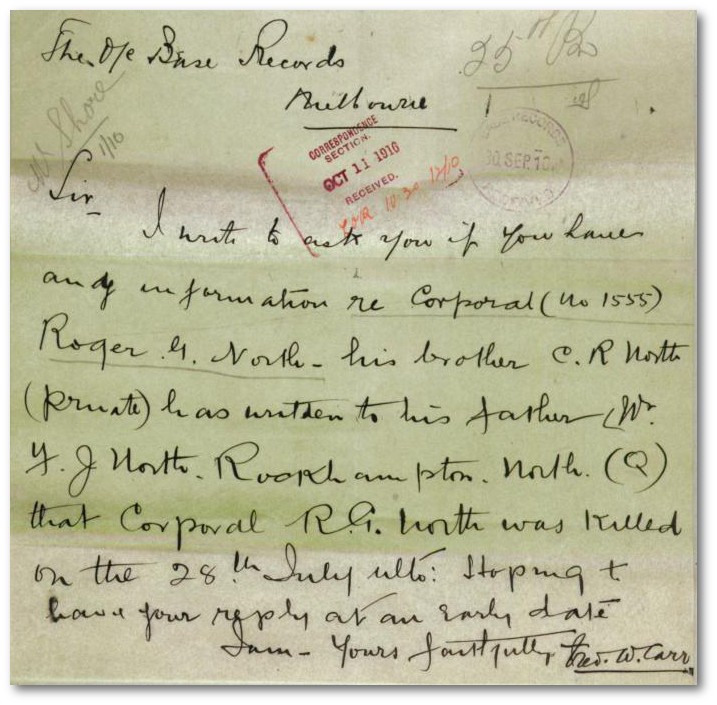 The O/c Base Records
Melbourne
25th Bn
Mr Shore
1/10
CORRESPONDENCE
SECTION.
OCT 11 1916
RECEIVED.
10.30 12/10
BASE RECORDS
30 SEP. 1916
RECEIVED
Sir
I write to ask you if you have
any information re Corporal (No 1555)
Roger G. North - his brother C. R North
(private) has written to his father (Mr
F. J North. Rockhampton. North. (Q)
that Corporal R.G. North was killed
on the 28th July ulto: Hoping t
have your reply at an early date
I am - Yours faithfully, Fred. W. Carr